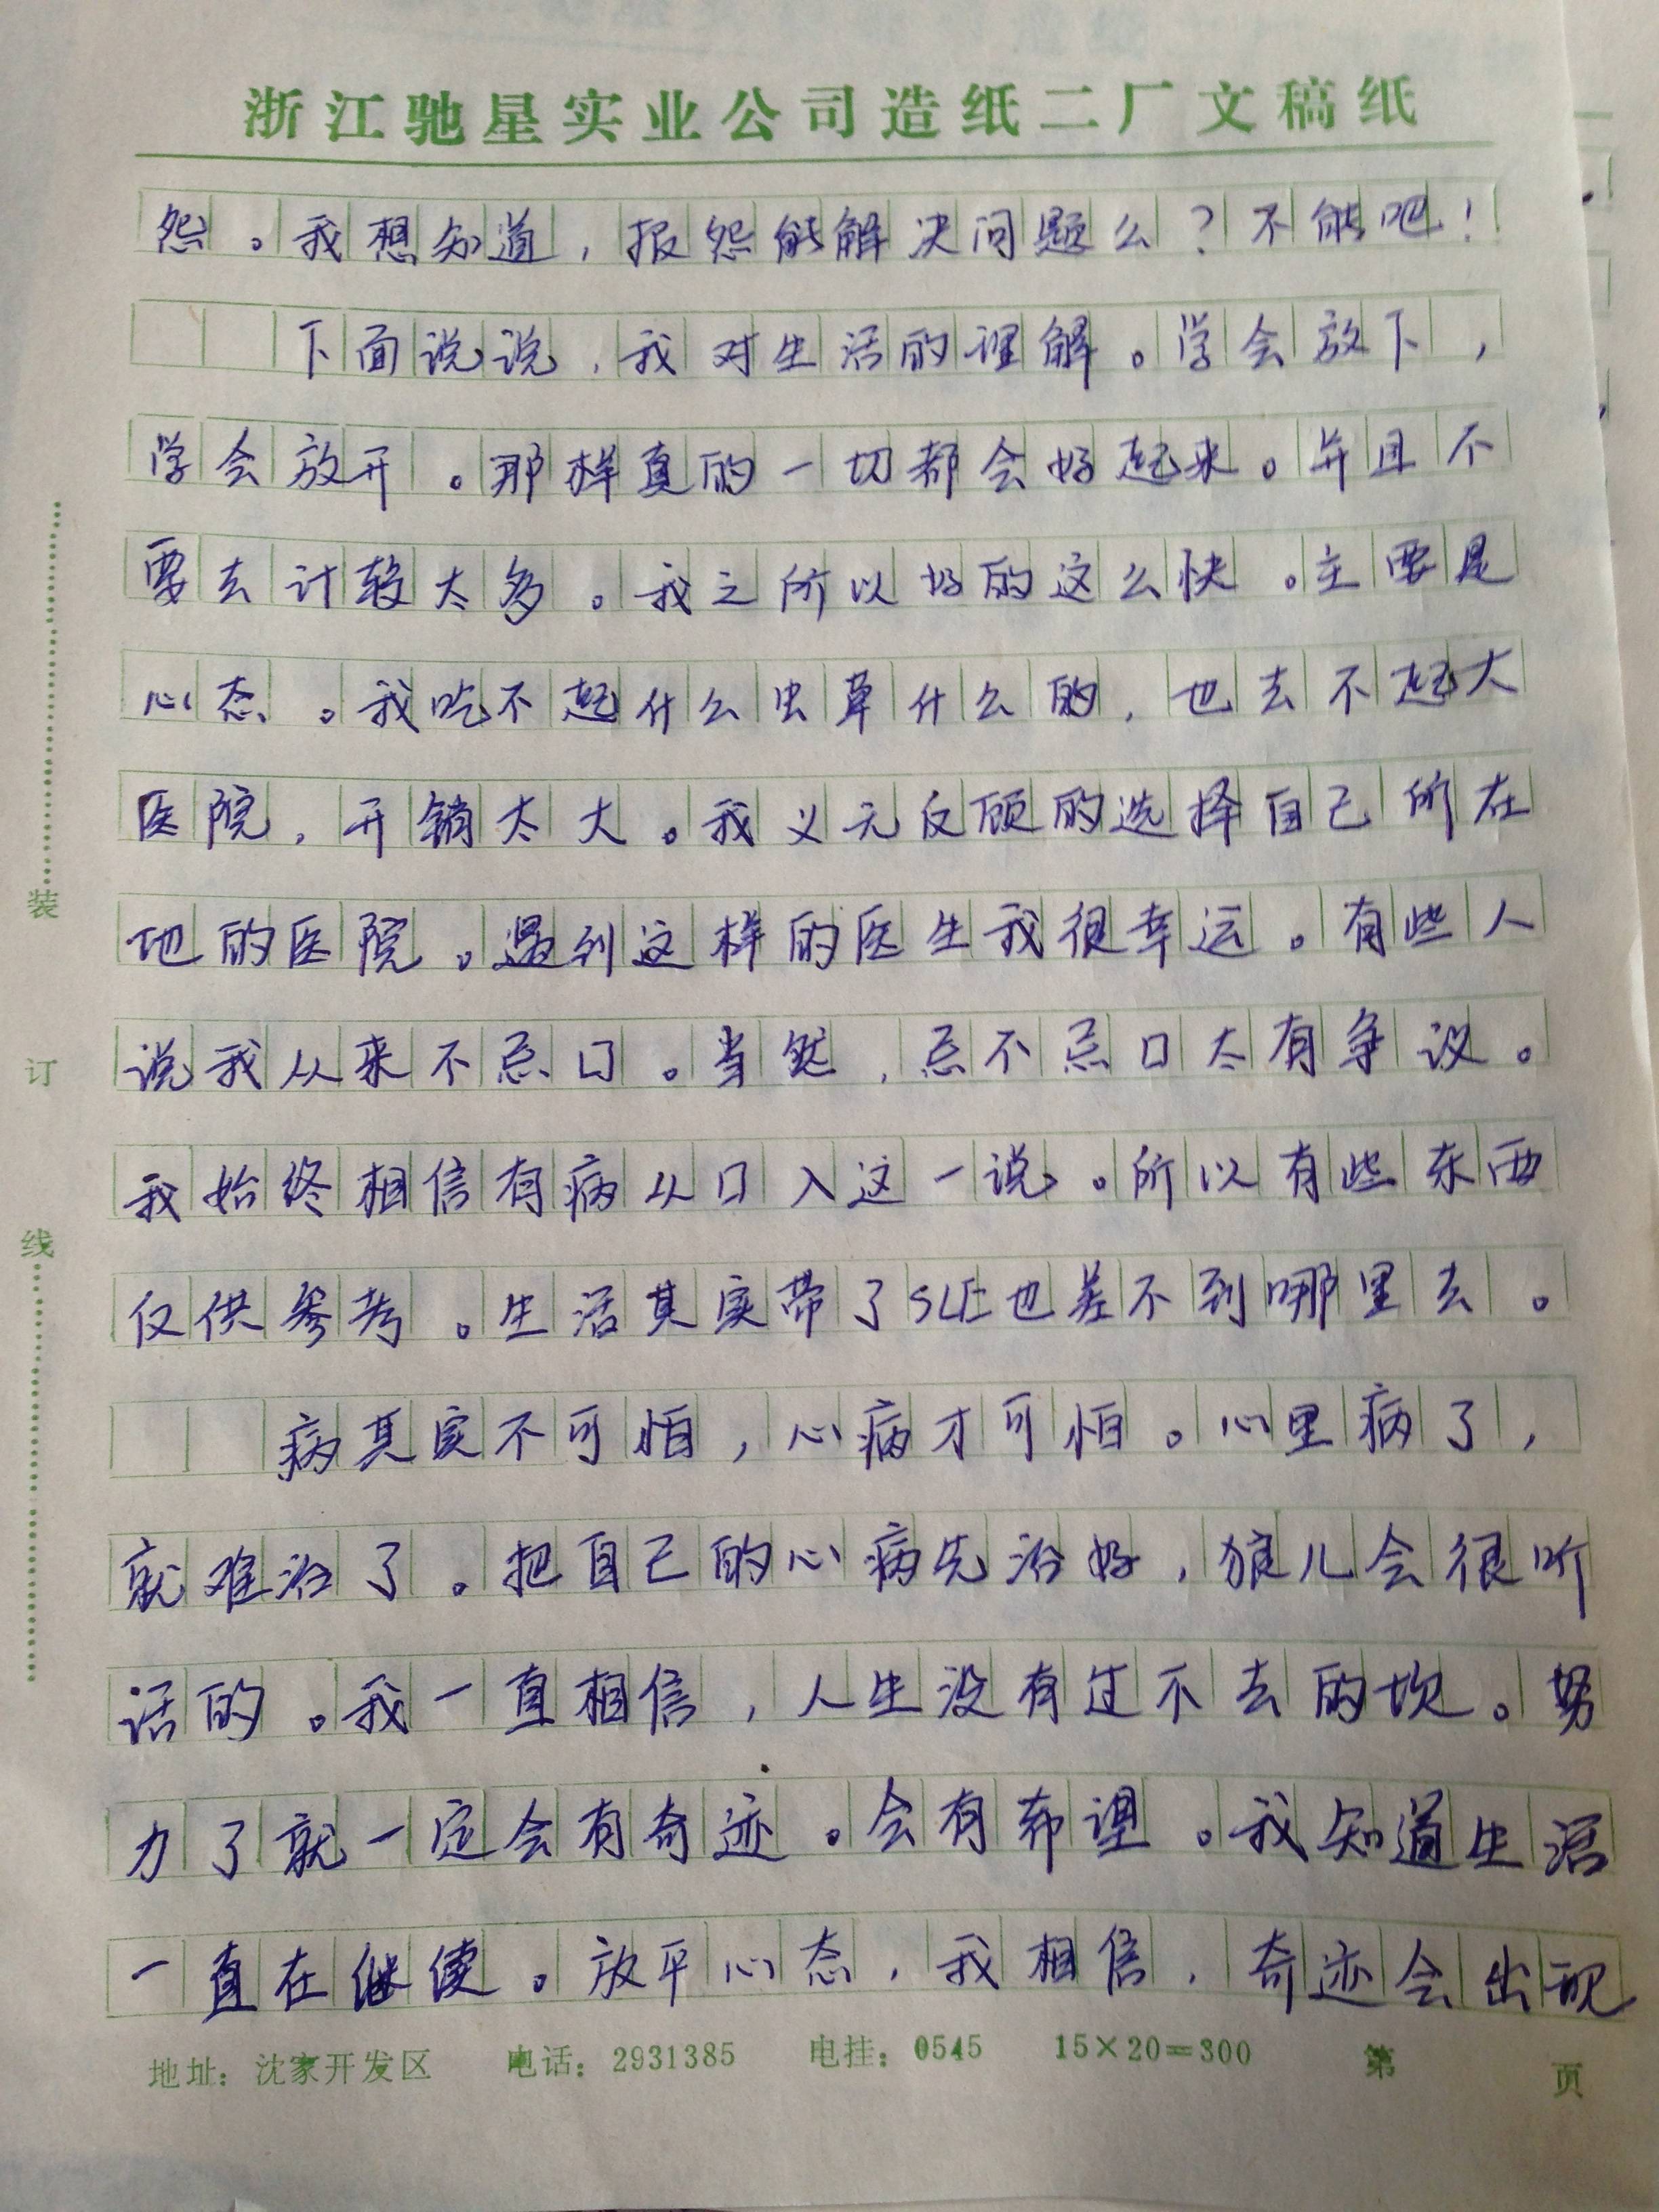 浙江驰星实业公司造纸二厂文稿纸
怨。我想知道,报怨能解决问题么?不能吧!
下面说说,我对生活的理解。学会放下,
学会放开。那样真的一切都会好起来。并且不
要去计较太多。我之所以好的这么快。主要是
心态。我吃不起什么虫草什么的,也去不起大
医院,开销太大。我义无反顾的选择自己所在
地的医院。遇到这样的医生我很幸运。有些人
说我从来不忌口。当然,忌不忌口太有争议。
我始终相信有病从口入这一说。所以有些东西
仅供参考。生活其实带了SLE也差不到哪里去。
病其实不可怕,心病才可怕。心里病了,
就难治了。把自己的心病先治好,狼儿会很听
话的。我一直相信,人生没有过不去的坎。努
力了就一定会有奇迹。会有希望。我知道生活
一直在继续。放平心态,我相信,奇迹会出现
装
订
线
地址:沈家开发区 电话:2931385 电挂:0545 15×20=300 第 页